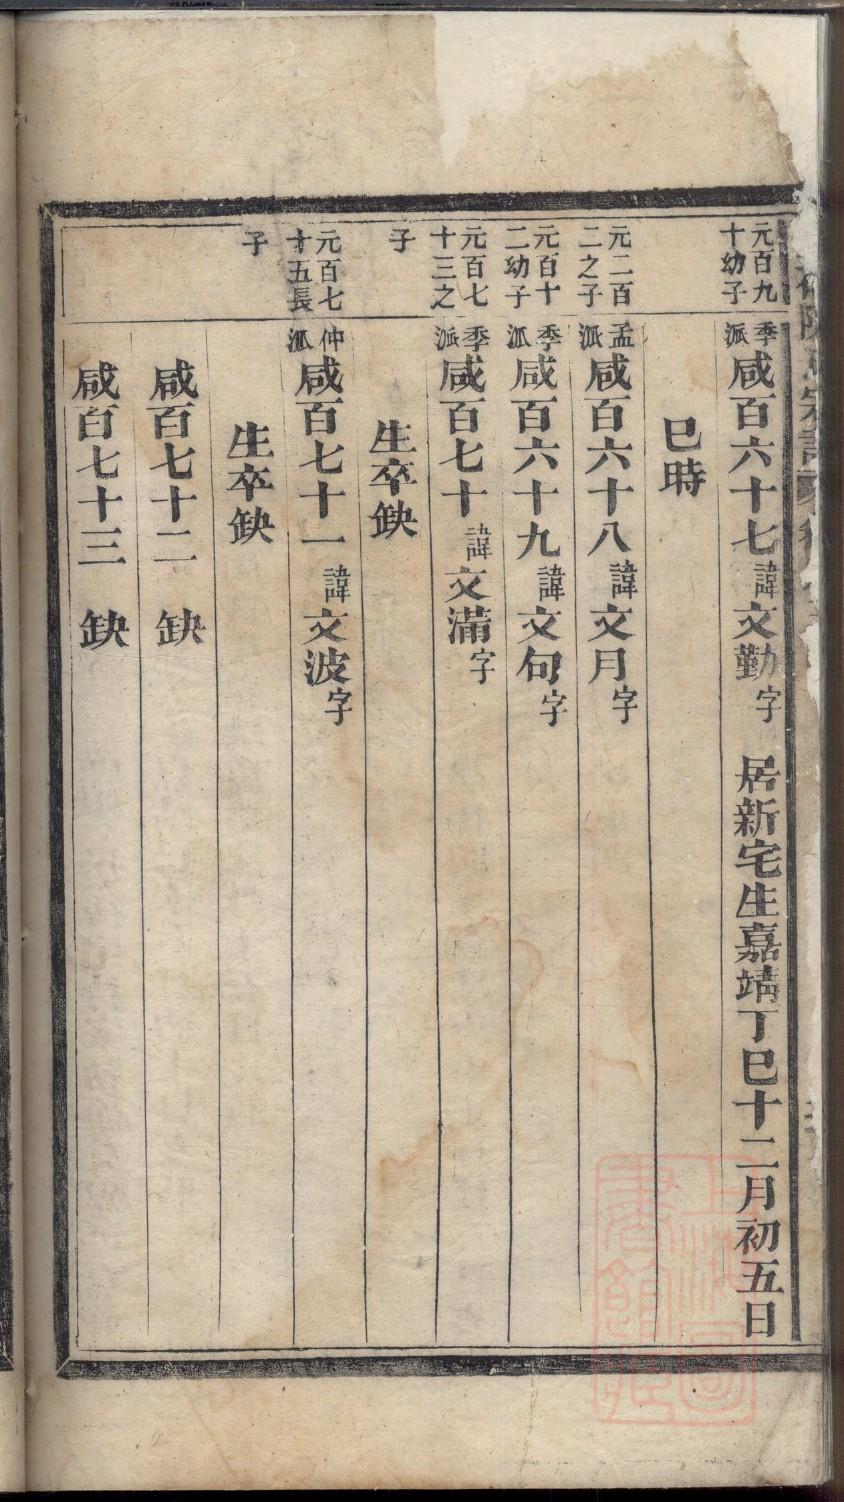 元百九十幼子
季派咸百六十七諱文勤字 居新宅生嘉靖丁巳十二月初五日
巳時
元二百二之子
孟派咸百六十八諱文月字
元百十二幼子
季派咸百六十九諱文句字
元百七十三之子
季派咸百七十諱文滿字
生卒缺
元百七十五長子
仲派咸百七十一諱文波字
生卒缺
咸百七十二 缺
咸百七十三 缺